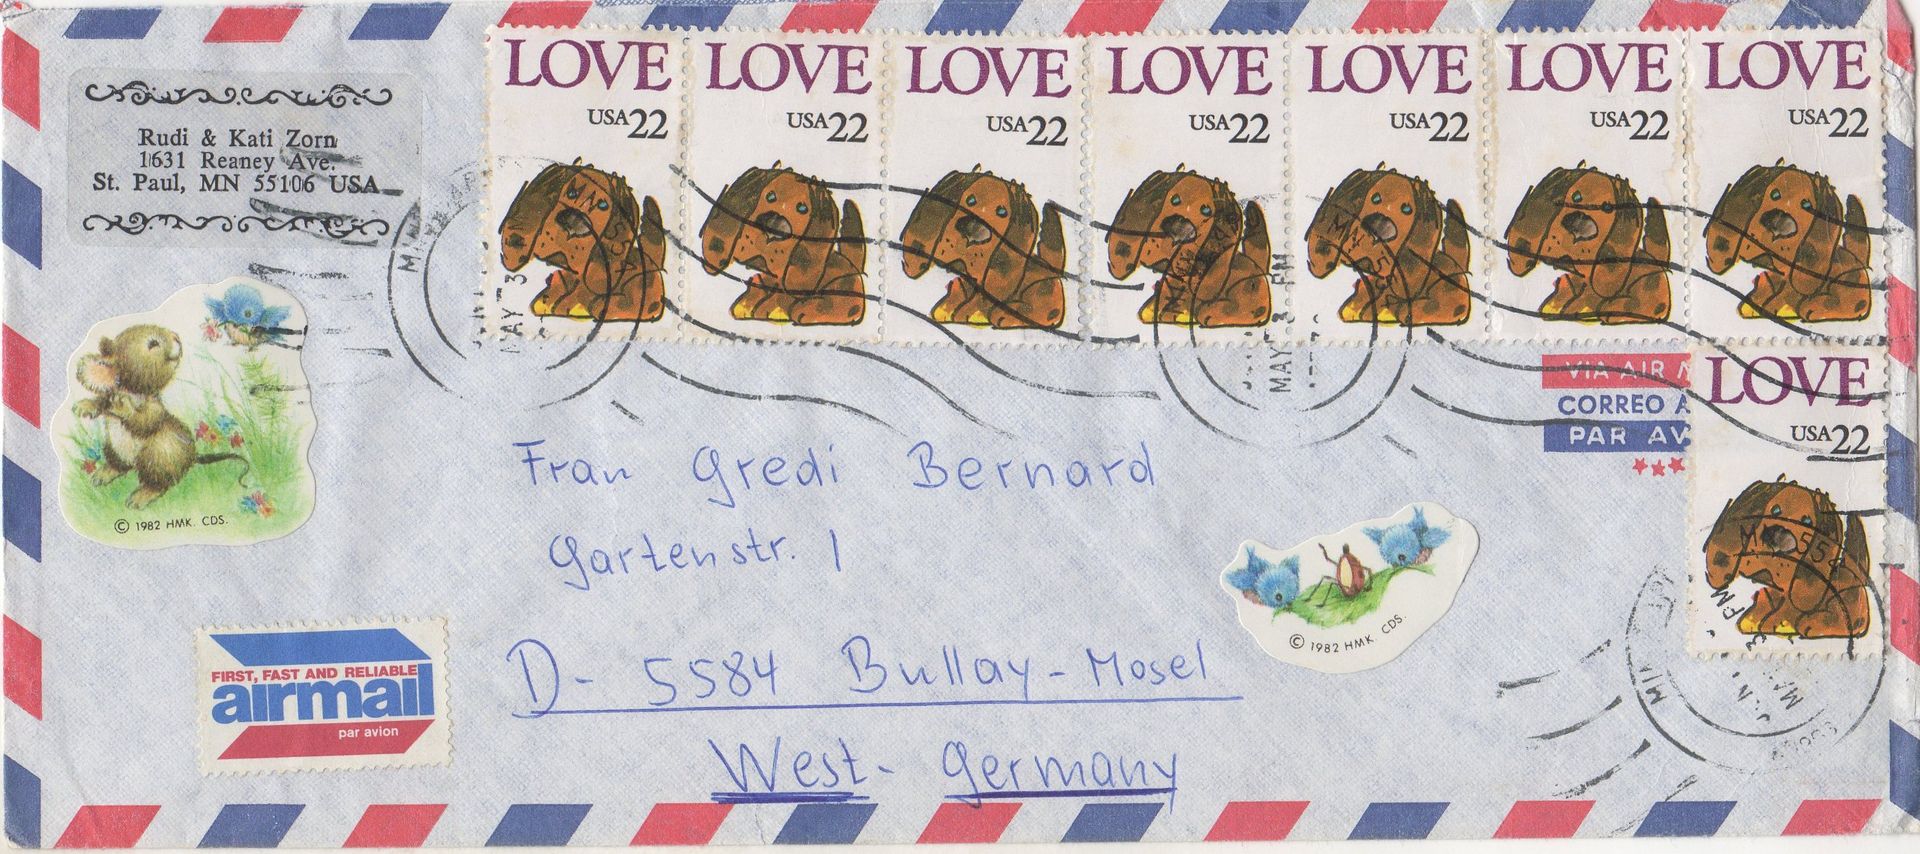 Rudi & Kati Zorn
1631 Reaney Ave.
St. Paul, MN 55106 USA
LOVE LOVE LOVE LOVE LOVE LOVE LOVE
USA22 USA22 USA22 USA22 USA22 USA22 USA22
MAY 3
MAY 3 PM
VIA AIR
CORREO A
PAR AV
LOVE
USA22
MN 554
PM
Frau Gredi Bernard
Gartenstr. 1
D- 5584 Bullay-Mosel
West- Germany
© 1982 HMK. CDS.
© 1982 HMK. CDS.
FIRST, FAST AND RELIABLE
airmail
par avion